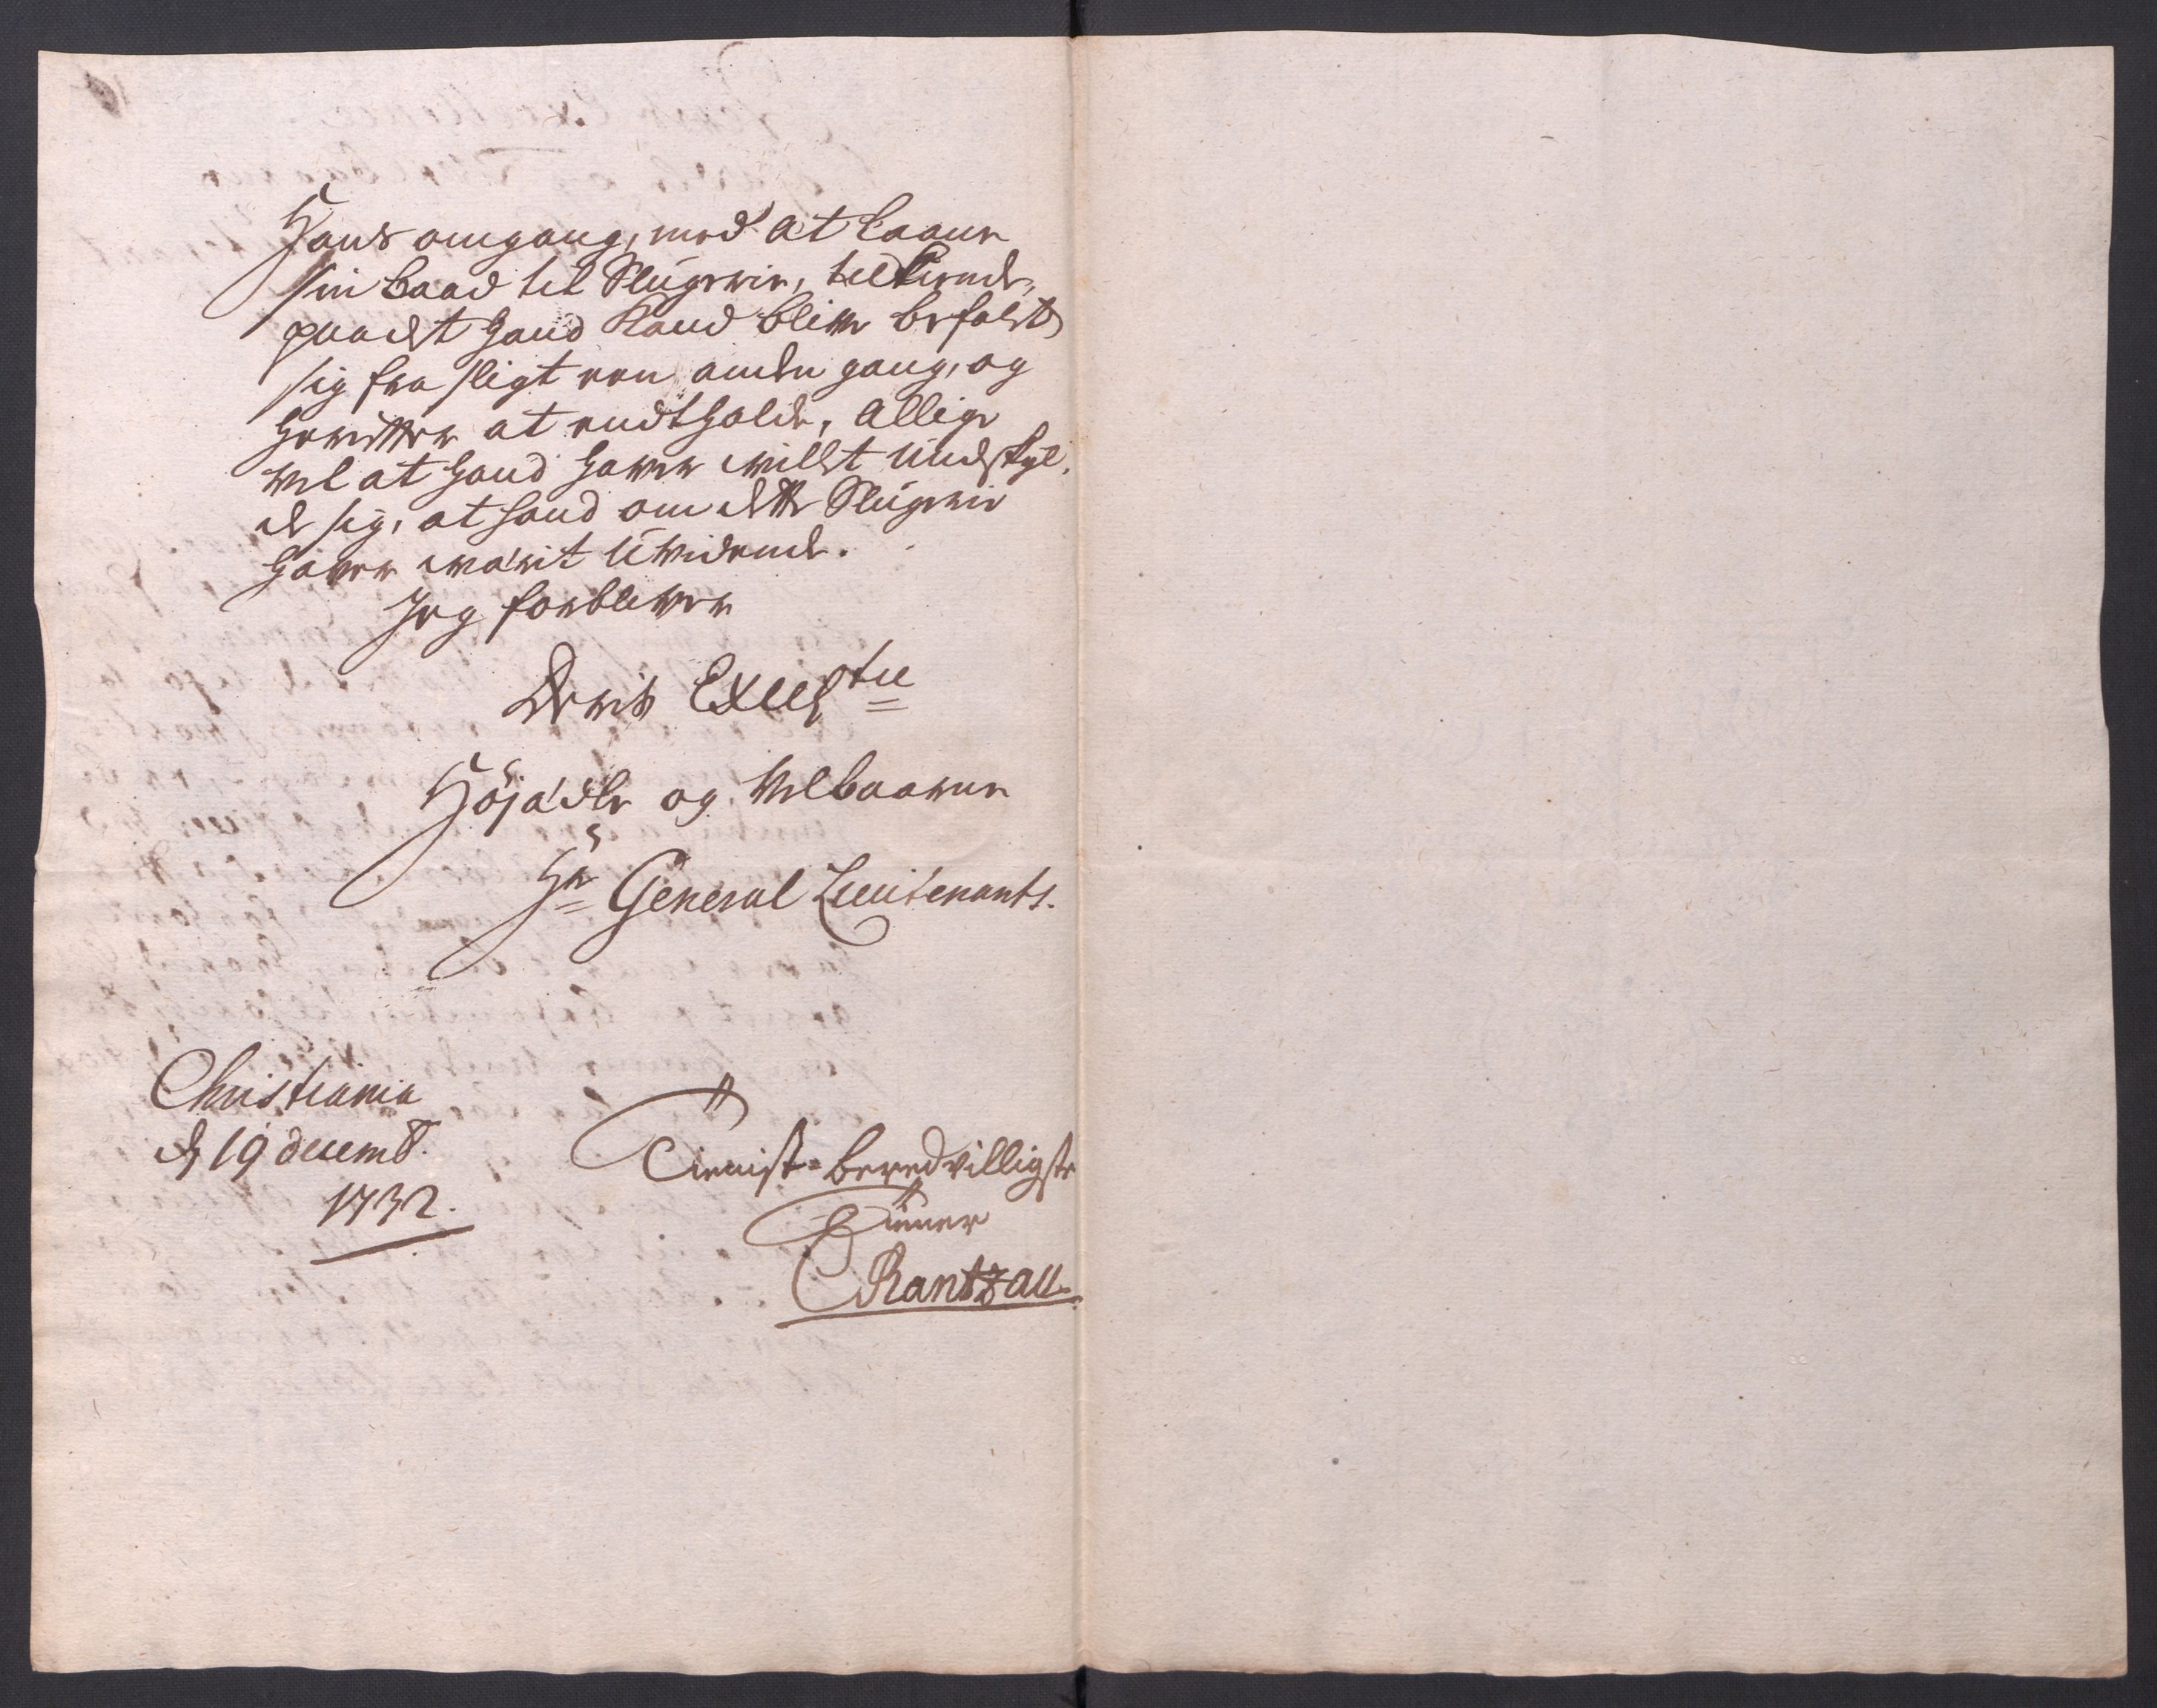 Hans omgang, med at laane
sin baad til Slugerie, tilkiende,
paadet hand kand blive befalet
sig fra sligt een anden gang, og
herefter at endtholde, allige
vel at hand haver villet undskyl,
de sig, at hand om dette Slugerie
haver wærit Uvidende.
Jeg forbliver
Deris Excell<sup>tze</sup>
Høyædle og Velbaarne
Hr General Lieutenants.
Christiania
d 19 decemb.
1732.
Tienist-beredvilligste
Tiener
CRantzau